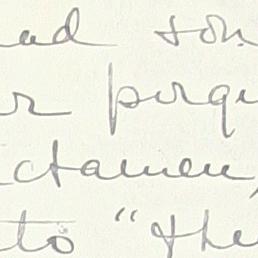 ad son
r perqu
ctamen,
to "the